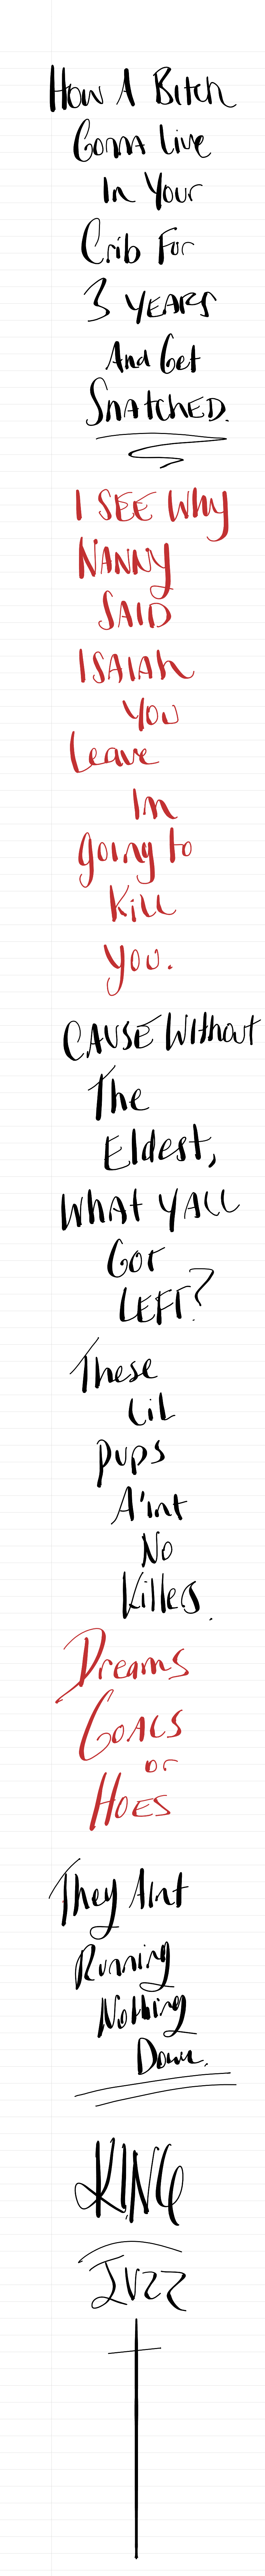 How A Bitch
Gonna Live
In Your
Crib For
3 YEARS
And Get
SnatchED.
I SEE Why
NANNY
SAID
ISAIAh
You
Leave
Im
going to
Kill
you.
CAUSE Without
The
Eldest,
What YALL
Got
LEFT?
These
Lil
pups
A'int
No
Killers.
Dreams
GOALS
or
HOES
They Aint
Running
Nothing
Down.
KING